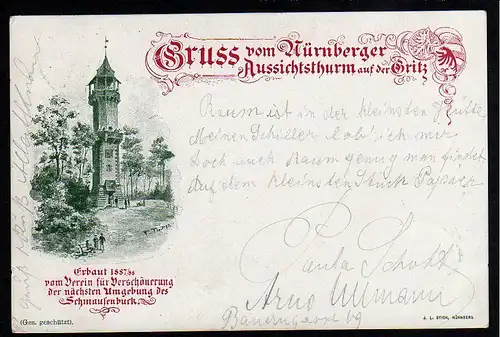 Gruss vom Nürnberger
Aussichtsthurm auf der Gritz
Raum ist in der kleinsten Hütte
Meinen Schiller lob' ich mir
Doch auch Raum genug man findet
Auf dem kleinsten Stück Papier
Paula Schott
Arno Ullmann
Bauerngasse 69
Erbaut 1887/88
vom Verein für Verschönerung
der nächsten Umgebung des
Schmausenbuck.
(Ges. geschützt).
A. L. STICH, NÜRNBERG